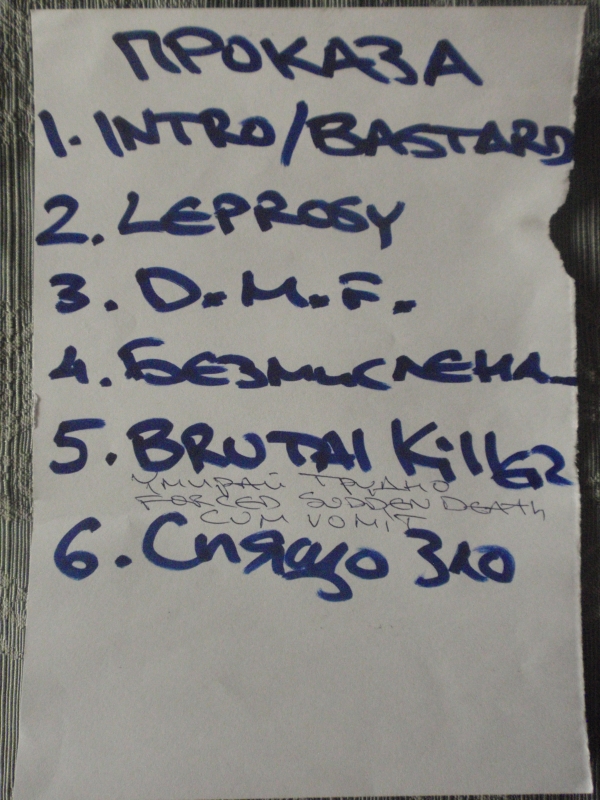 ПРОКАЗА
1. INTRO/BASTARD
2. LEPROSY
3. D.M.F.
4. БЕЗМИСЛЕНА
5. BRUTAL KillER
УМИРАЙ ТРУДНО
FORCED SUDDEN DEATH
CUM VOMIT
6. Спящо Зло